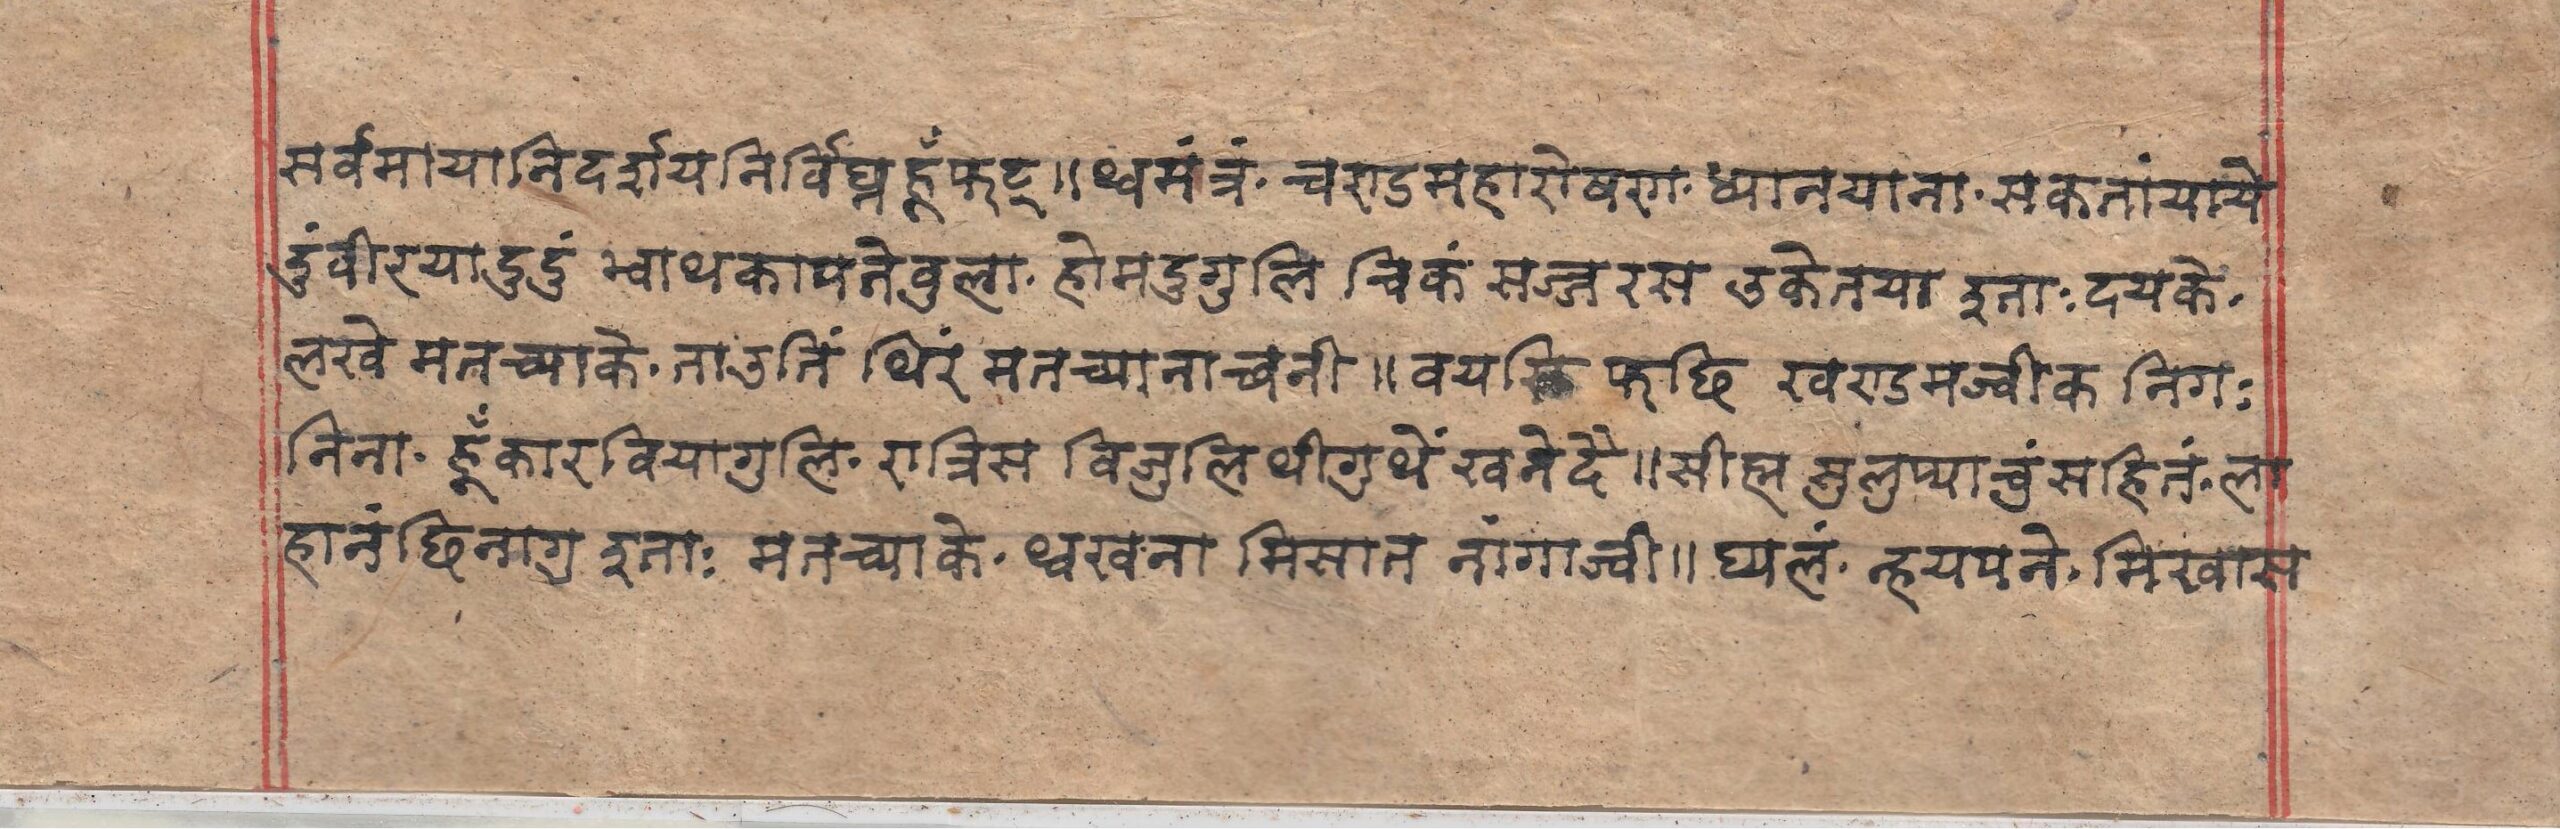 सर्वमायानिदर्शय निर्विघ्न हूँ फट्॥ थ्वमंत्रं· चण्डमहारोषण· ध्यानयाना· सकतांयाये
डुंवीरयादुडुं भ्वाथकापतेवुला· होमडुगुलि चिकं सज्जरस उकेतया इताः दयके·
लखे मतच्याके· ताउतिं थिरं मतच्यानाच्वनी॥ वयक्ति फछि खण्डमज्वीक निगः
निना· हूँकारवियागुलि· रात्रिस विजुलिथीगुथें खनेदै॥ सीह्म सुलुप्याचुं सहितं· ला
हानं छिनागु इताः मतच्याके· थ्वखना मिसात नांगाज्वी॥ घ्यलं· न्हयपने· मिखास